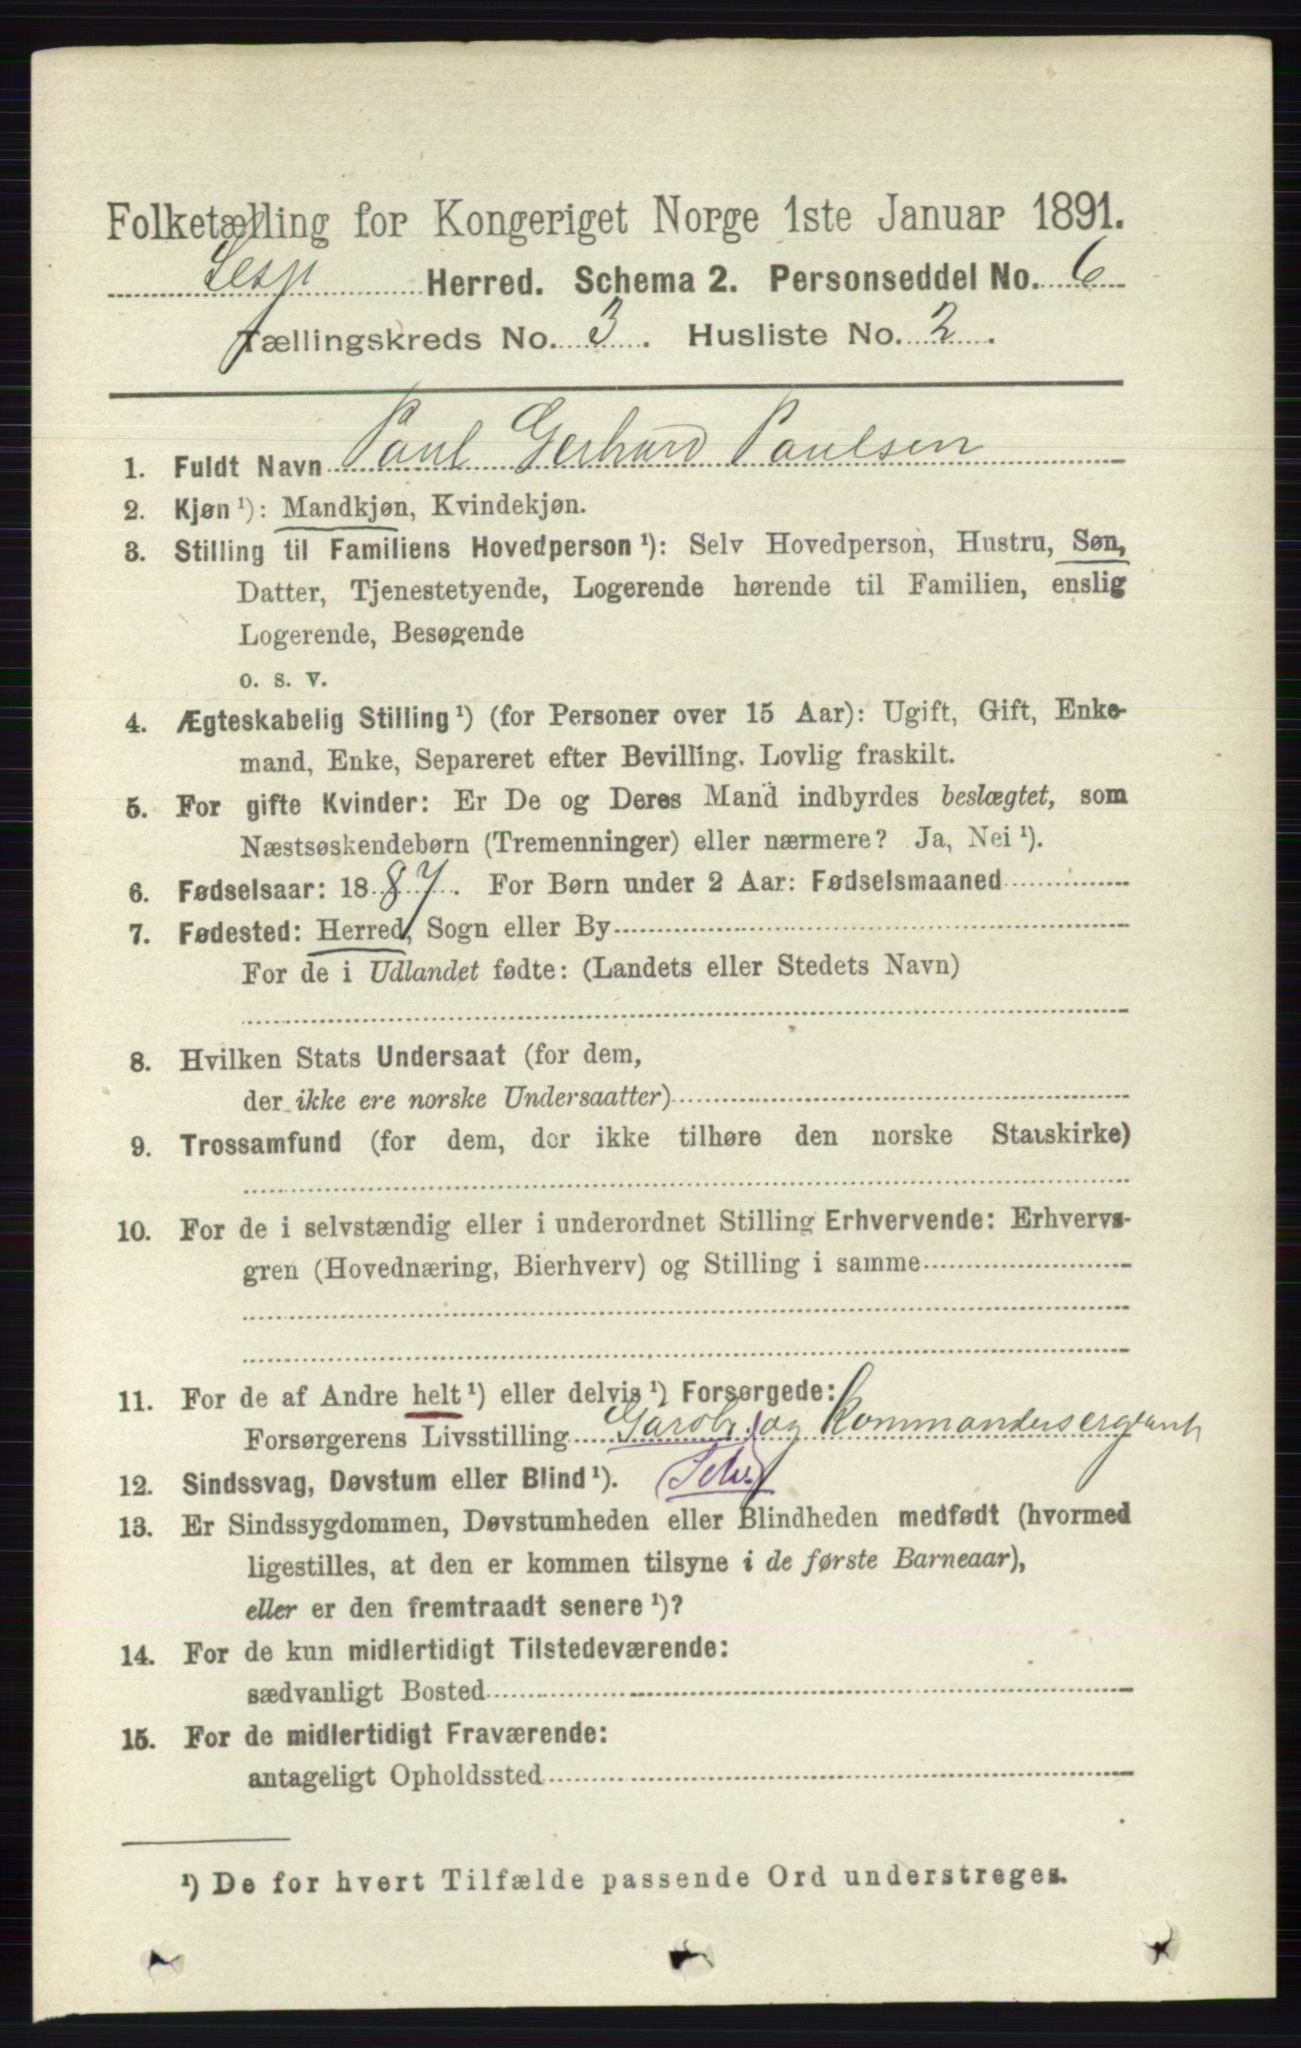 Folketælling for Kongeriget Norge 1ste Januar 1891.
Lesja Herred. Schema 2. Personseddel No. 6
Tællingskreds No. 3. Husliste No. 2.
1. Fuldt Navn Paul Gerhard Paulsen
2. Kjøn ¹): Mandkjøn, Kvindekjøn.
3. Stilling til Familiens Hovedperson ¹): Selv Hovedperson, Hustru, Søn,
Datter, Tjenestetyende, Logerende hørende til Familien, enslig
Logerende, Besøgende
o. s. v.
4. Ægteskabelig Stilling ¹) (for Personer over 15 Aar): Ugift, Gift, Enke-
mand, Enke, Separeret efter Bevilling. Lovlig fraskilt.
5. For gifte Kvinder: Er De og Deres Mand indbyrdes beslægtet, som
Næstsøskendebørn (Tremenninger) eller nærmere? Ja, Nei ¹).
6. Fødselsaar: 1887. For Børn under 2 Aar: Fødselsmaaned
7. Fødested: Herred, Sogn eller By
For de i Udlandet fødte: (Landets eller Stedets Navn)
8. Hvilken Stats Undersaat (for dem,
der ikke ere norske Undersaatter)
9. Trossamfund (for dem, der ikke tilhøre den norske Statskirke)
10. For de i selvstændig eller i underordnet Stilling Erhvervende: Erhvervs-
gren (Hovednæring, Bierhverv) og Stilling i samme
11. For de af Andre helt ¹) eller delvis ¹) Forsørgede:
Forsørgerens Livsstilling Gardbr. og Kommandersergeant
12. Sindssvag, Døvstum eller Blind ¹). (Selv.)
13. Er Sindssygdommen, Døvstumheden eller Blindheden medfødt (hvormed
ligestilles, at den er kommen tilsyne i de første Barneaar),
eller er den fremtraadt senere ¹)?
14. For de kun midlertidigt Tilstedeværende:
sædvanligt Bosted
15. For de midlertidigt Fraværende:
antageligt Opholdssted
¹) De for hvert Tilfælde passende Ord understreges.